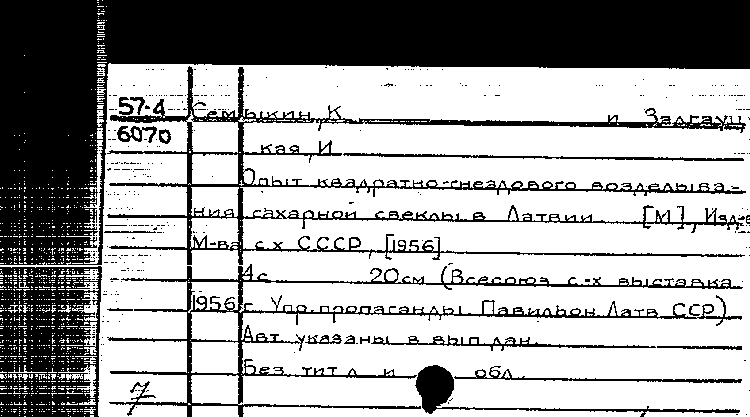 57-4 Семыкин, К. и Залгауц
6070 кая, И
Опыт квадратно-гнездового возделыва-
ния сахарной свеклы в Латвии. [М], Изд-в
М-ва с.х СССР, [1956]
4с 20см (Всесоюз с-х выставка
1956 г. Упр. пропаганды. Павильон Латв ССР)
Авт. указаны в вып дан.
Без тит л и обл.
7